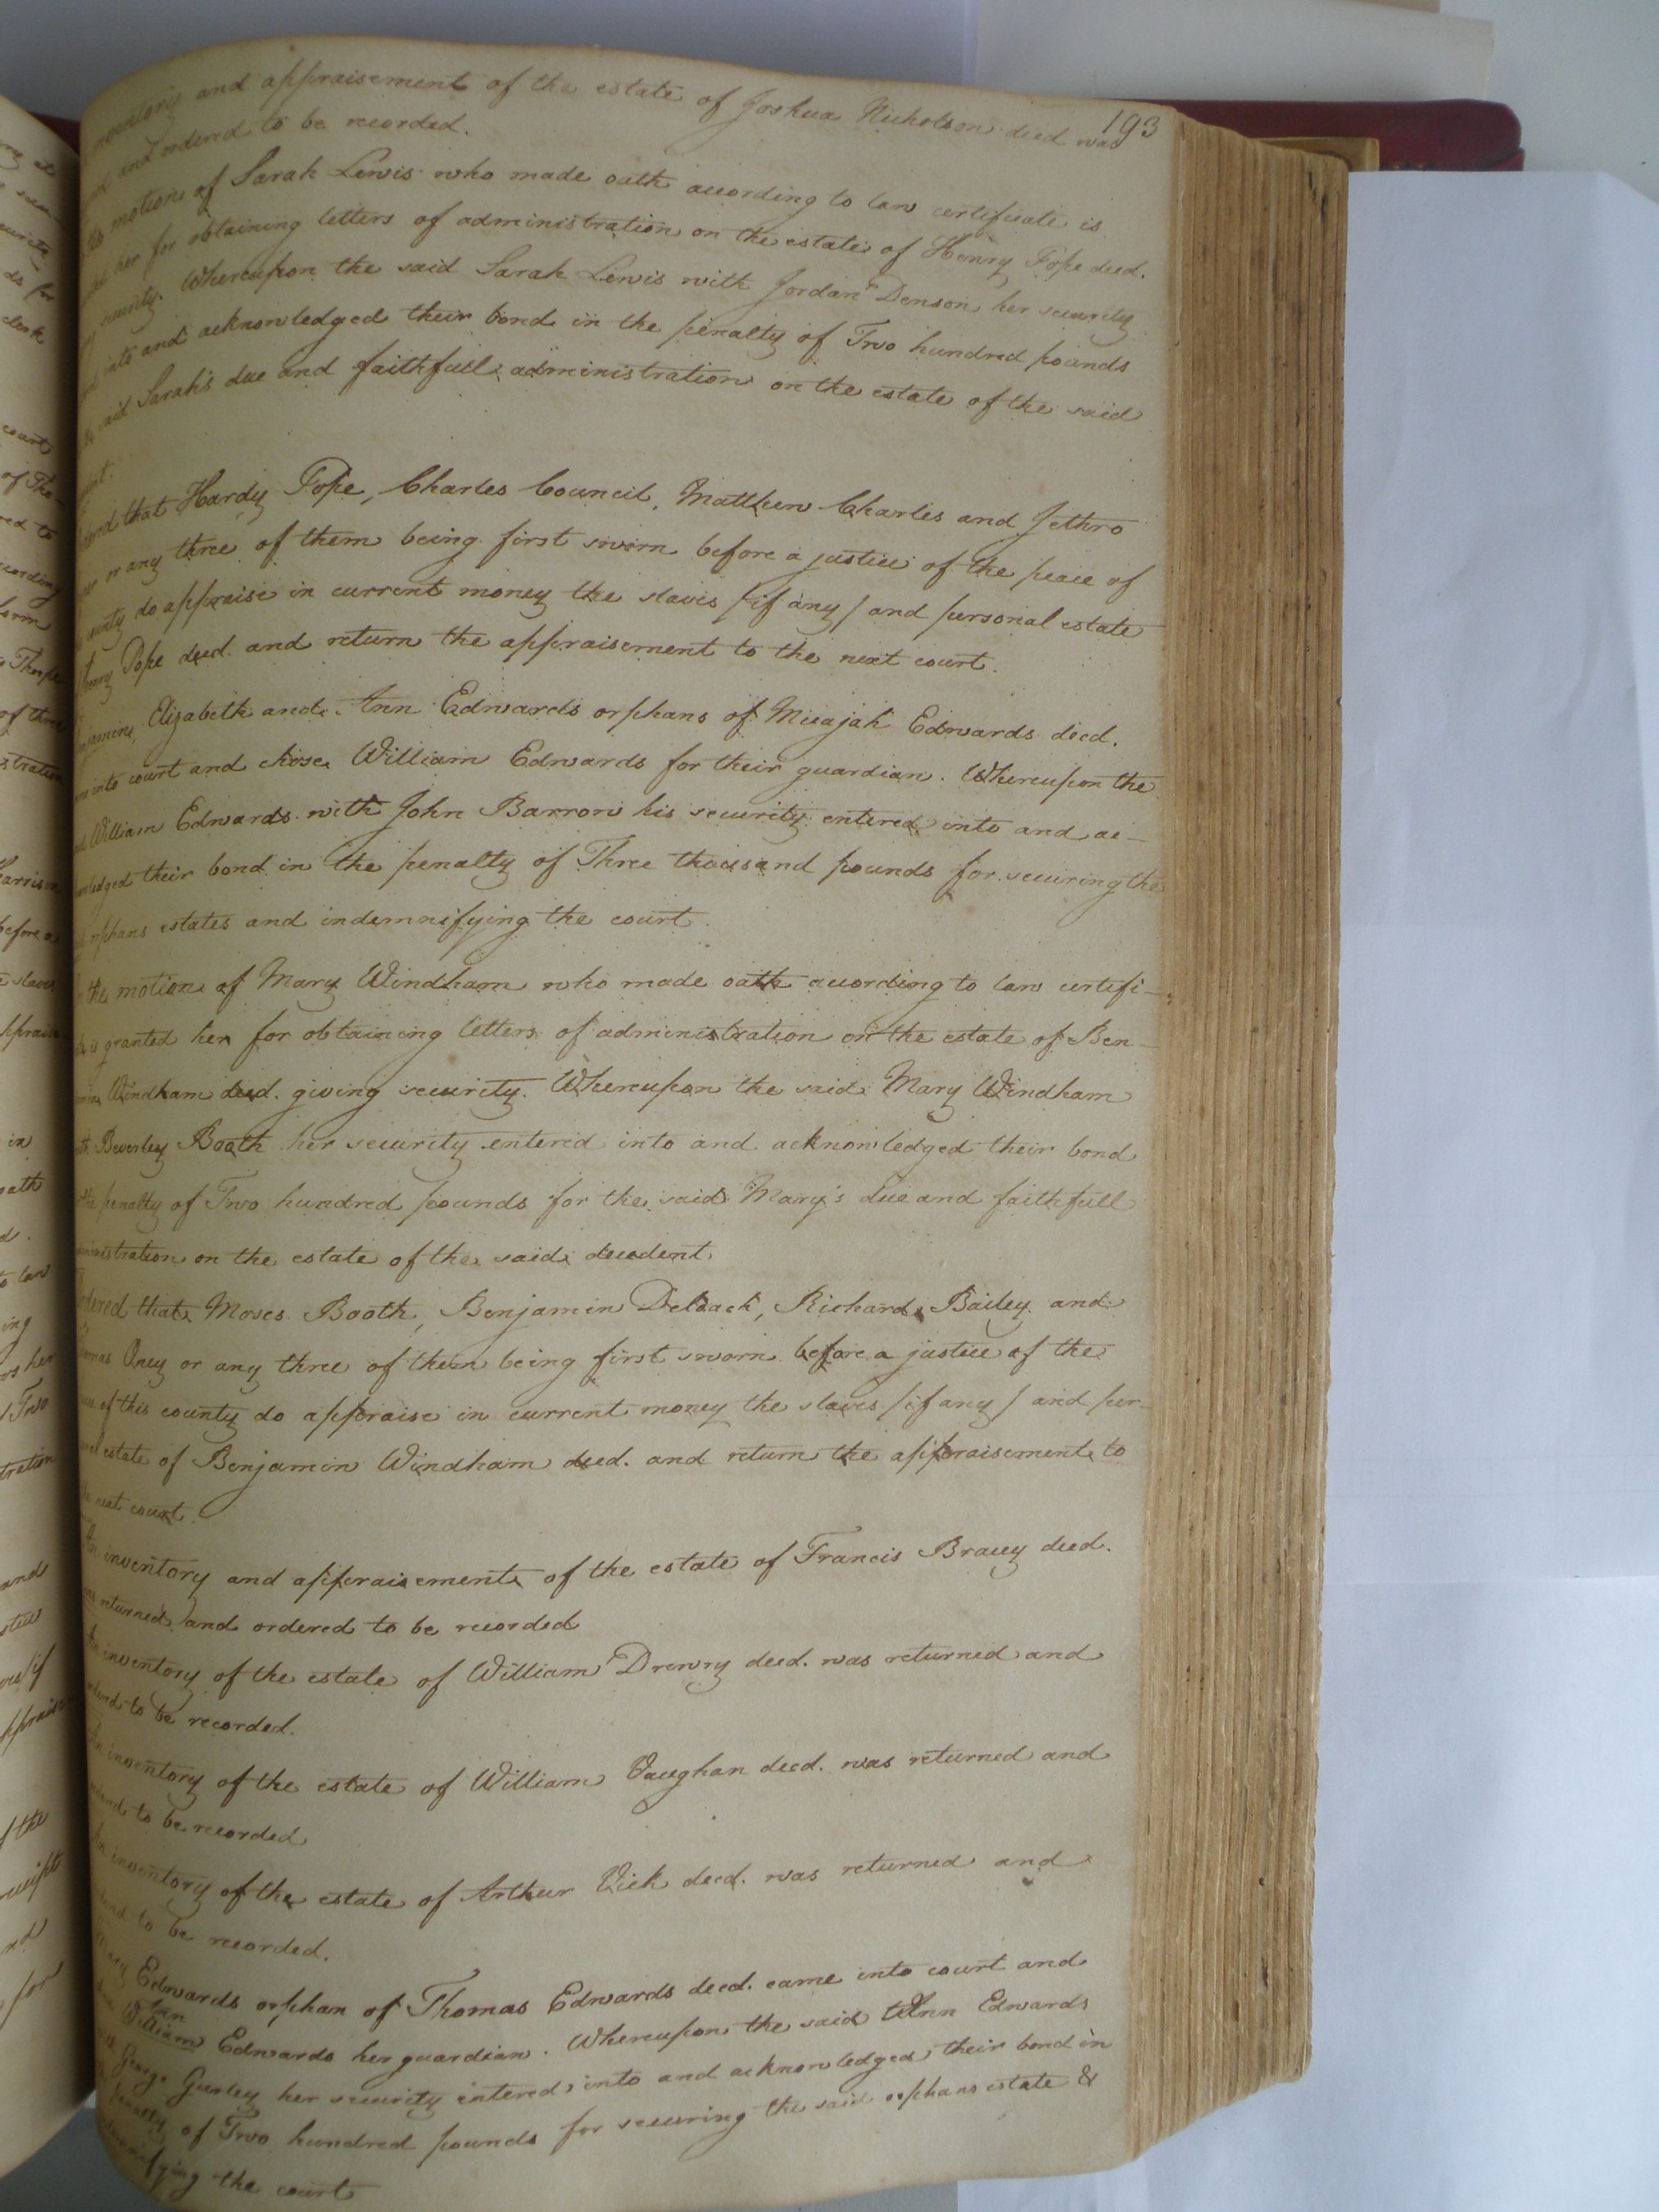 193
inventory and appraisement of the estate of Joshua Nicholson decd was
and ordered to be recorded.
the motion of Sarah Lewis who made oath according to law certificate is
her for obtaining letters of administration on the estate of Henry Pope decd.
security. Whereupon the said Sarah Lewis with Jordan Denson her security
into and acknowledged their bond in the penalty of Two hundred pounds
said Sarah's due and faithfull administration on the estate of the said
that Hardy Pope, Charles Council, Matthew Charles and Jethro
or any three of them being first sworn before a justice of the peace of
county do appraise in current money the slaves /if any/ and personal estate
Henry Pope decd. and return the appraisement to the next court.
Elizabeth and Ann Edwards orphans of Micajah Edwards decd.
into court and chose William Edwards for their guardian. Whereupon the
William Edwards with John Barrow his security entered into and ac-
knowledged their bond in the penalty of Three thousand pounds for securing the
orphans estates and indemnifying the court.
the motion of Mary Windham who made oath according to law certifi-
is granted her for obtaining letters of administration on the estate of Ben-
Windham decd. giving security. Whereupon the said Mary Windham
Beverley Booth her security entered into and acknowledged their bond
the penalty of Two hundred pounds for the said Mary's due and faithfull
administration on the estate of the said decedent
Ordered that Moses Booth, Benjamin Deloach, Richard Bailey and
Thomas Oney or any three of them being first sworn before a justice of the
of this county do appraise in current money the slaves /if any/ and per-
estate of Benjamin Windham decd. and return the appraisement to
the next court.
An inventory and appraisement of the estate of Francis Bracey decd.
was returned and ordered to be recorded
An inventory of the estate of William Drewry decd. was returned and
ordered to be recorded.
An inventory of the estate of William Vaughan decd. was returned and
ordered to be recorded
An inventory of the estate of Arthur Vick decd. was returned and
to be recorded.
Mary Edwards orphan of Thomas Edwards decd. came into court and
Ann
William Edwards her guardian. Whereupon the said Ann Edwards
George Gurley her security entered into and acknowledged their bond in
penalty of Two hundred pounds for securing the said orphans estate &
the court